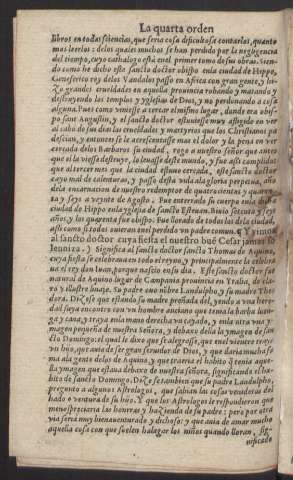 La quarta orden
libros en todas sciencias, que seria cosa dificultosa contarlos, quanto
mas leerlos: delos quales muchos se han perdido por la negligencia
del tiempo, cuyo cathalogo está en el primer tomo de sus obras. Sien
do como he dicho este sancto doctor obispo en la ciudad de Hippo,
Genserico rey delos Vandalos passo en Africa con gran gente, y hi-
zo grandes crueldades en aquella prouincia robando y matando y
destruyendo los templos y yglesias de Dios, y no perdonando a cosa
alguna. Pues como viniesse a cercar al mismo lugar, donde era obis-
po sant Augustin, y el sancto doctor estuuiesse muy affligido en ver
al cabo de sus dias las crueldades y martyrios que los Christianos pa
descian, y entonces se le acrescentasse mas el dolor y la pena en ver
cercada delos Barbaros su ciudad, rogo a nuestro señor que antes
que el la viesse destruyr, lo leuasse deste mundo, y fue assi cumplido
que al tercer mes que la ciudad estuuo cercada, este sancto doctor
cayo mal de calenturas, y passó desta vida ala gloria perpetua, año
dela encarnacion de nuestro redemptor de quatrocientos y quaren-
ta y seys a veynte de Agosto. Fue enterrado su cuerpo en la dicha
ciudad de Hippo en la yglesia de sancto Esteuan. biuio setenta y seys
años, y los quarenta fue obispo. Fue llorado de todos los dela ciudad,
assi como si todos vuieran en el perdido vn padre comun. Y vimos
al sancto doctor cuya fiesta
Significa al sancto doctor sancto Thomas de Aquino,
cuya fiesta se celebraua en todo el reyno, y principalmente la celebra
ua el rey don Iuan, porque nascio en su dia. Este sancto doctor fue
natural de Aquino lugar de Campania prouincia en Ytalia, de cla-
ro y illustre linaje. Su padre vuo nombre Landulpho, y su madre Theo
dora. Dizese que estando su madre preñada del, yendo a vna here-
dad suya encontro con vn hombre anciano que tenia la barba luen-
ga y cana, y traya en la mano derecha vn cayado, y en la otra vna y-
magen pequeña de nuestra Señora, y debaxo della la ymagen de san
cto Domingo: el qual le dixo que se alegrasse, que en el vientre traya
vn hijo, que auia de ser gran seruidor de Dios, y que daria mucha fa-
ma ala gente delos de Aquino, y que traeria el habito que tenia aque-
lla ymagen que estaua debaxo de nuestra señora, significando el ha-
bito de sancto Domingo. Dizese tambien que su padre Landulpho,
pregunto a algunos Astrologos, que sabian las cosas venideras del
hado o ventura de su hijo. Y que los Astrologos le respondieron que
menospreciaria las honrras y hazienda de su padre: pero por otra
via seria muy bienauenturado y dichoso: y que auia de amar mucho
aquella cosa con que suelen halagar los niños quando lloran, sig-
nificado